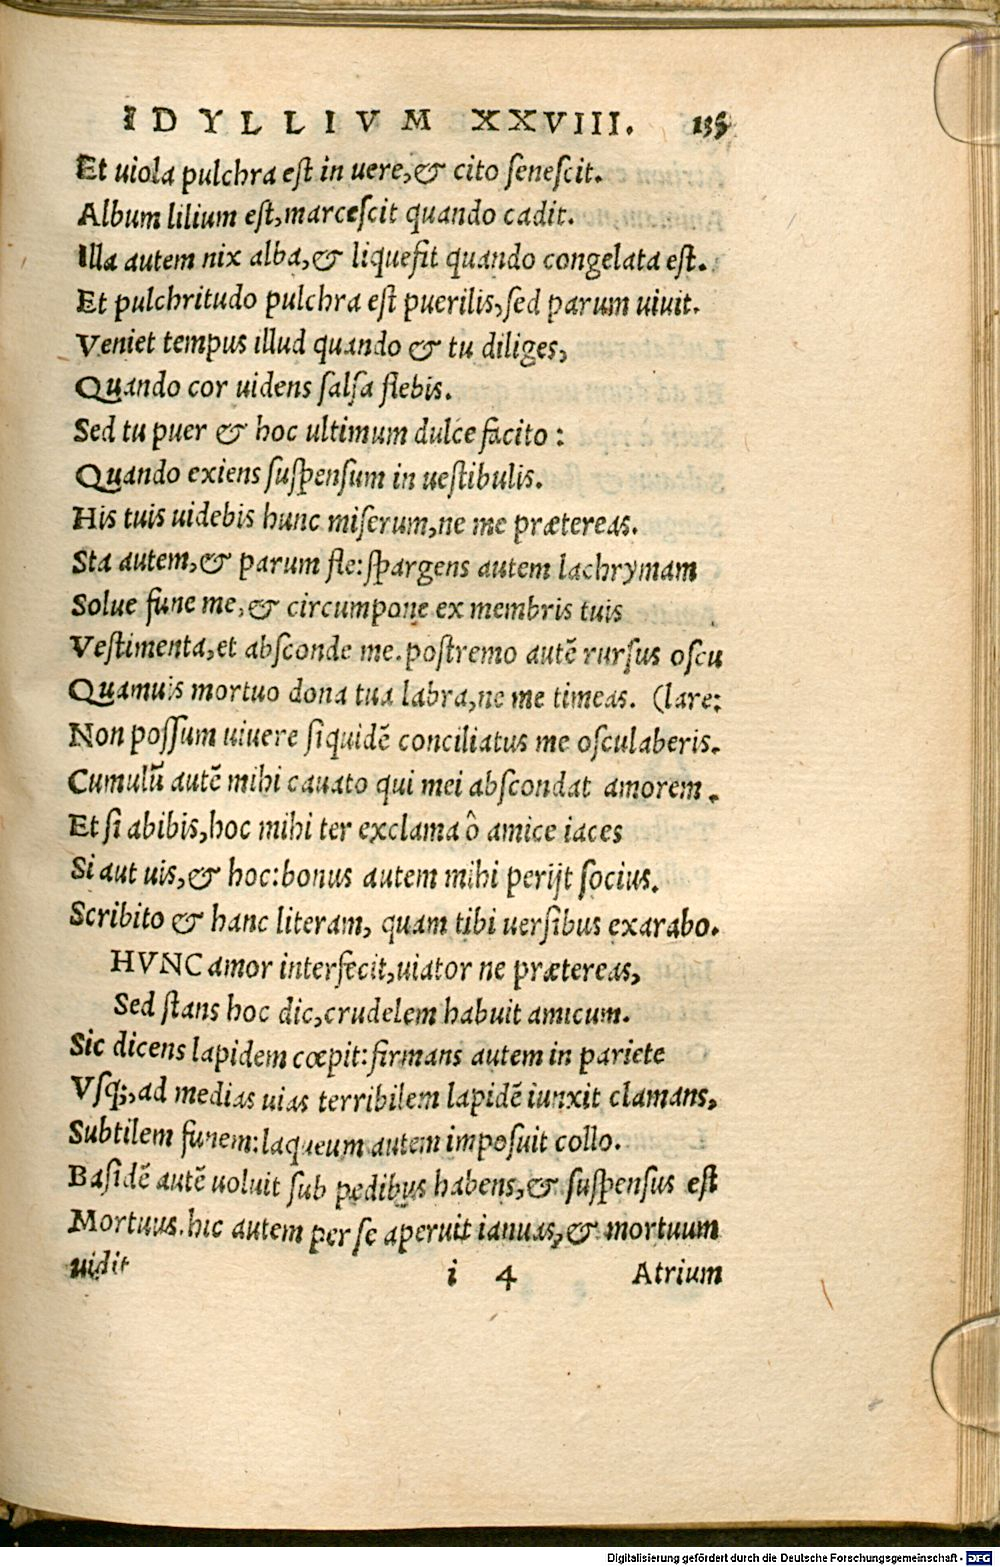 IDYLLIVM XXVIII. 135
Et uiola pulchra est in uere, & cito senescit.
Album lilium est, marcescit quando cadit.
Illa autem nix alba, & liquefit quando congelata est.
Et pulchritudo pulchra est puerilis, sed parum uiuit.
Veniet tempus illud quando & tu diliges,
Quando cor uidens salsa flebis.
Sed tu puer & hoc ultimum dulce facito:
Quando exiens suspensum in uestibulis.
His tuis uidebis hunc miserum, ne me prætereas.
Sta autem, & parum fle: spargens autem lachrymam
Solue fune me, & circumpone ex membris tuis
Vestimenta, et absconde me. postremo autē rursus oscu
Quamuis mortuo dona tua labra, ne me timeas. (lare:
Non possum uiuere siquidē conciliatus me osculaberis.
Cumulū autē mihi cauato qui mei abscondat amorem.
Et si abibis, hoc mihi ter exclama ô amice iaces
Si aut uis, & hoc: bonus autem mihi perijt socius.
Scribito & hanc literam, quam tibi uersibus exarabo.
HVNC amor interfecit, uiator ne prætereas,
Sed stans hoc dic, crudelem habuit amicum.
Sic dicens lapidem cœpit: firmans autem in pariete
Vsq;, ad medias uias terribilem lapidē iunxit clamans,
Subtilem funem: laqueum autem imposuit collo.
Basidē autē uoluit sub pedibus habens, & suspensus est
Mortuus. hic autem per se aperuit ianuas, & mortuum
uidit i 4 Atrium
Digitalisierung gefördert durch die Deutsche Forschungsgemeinschaft - DFG